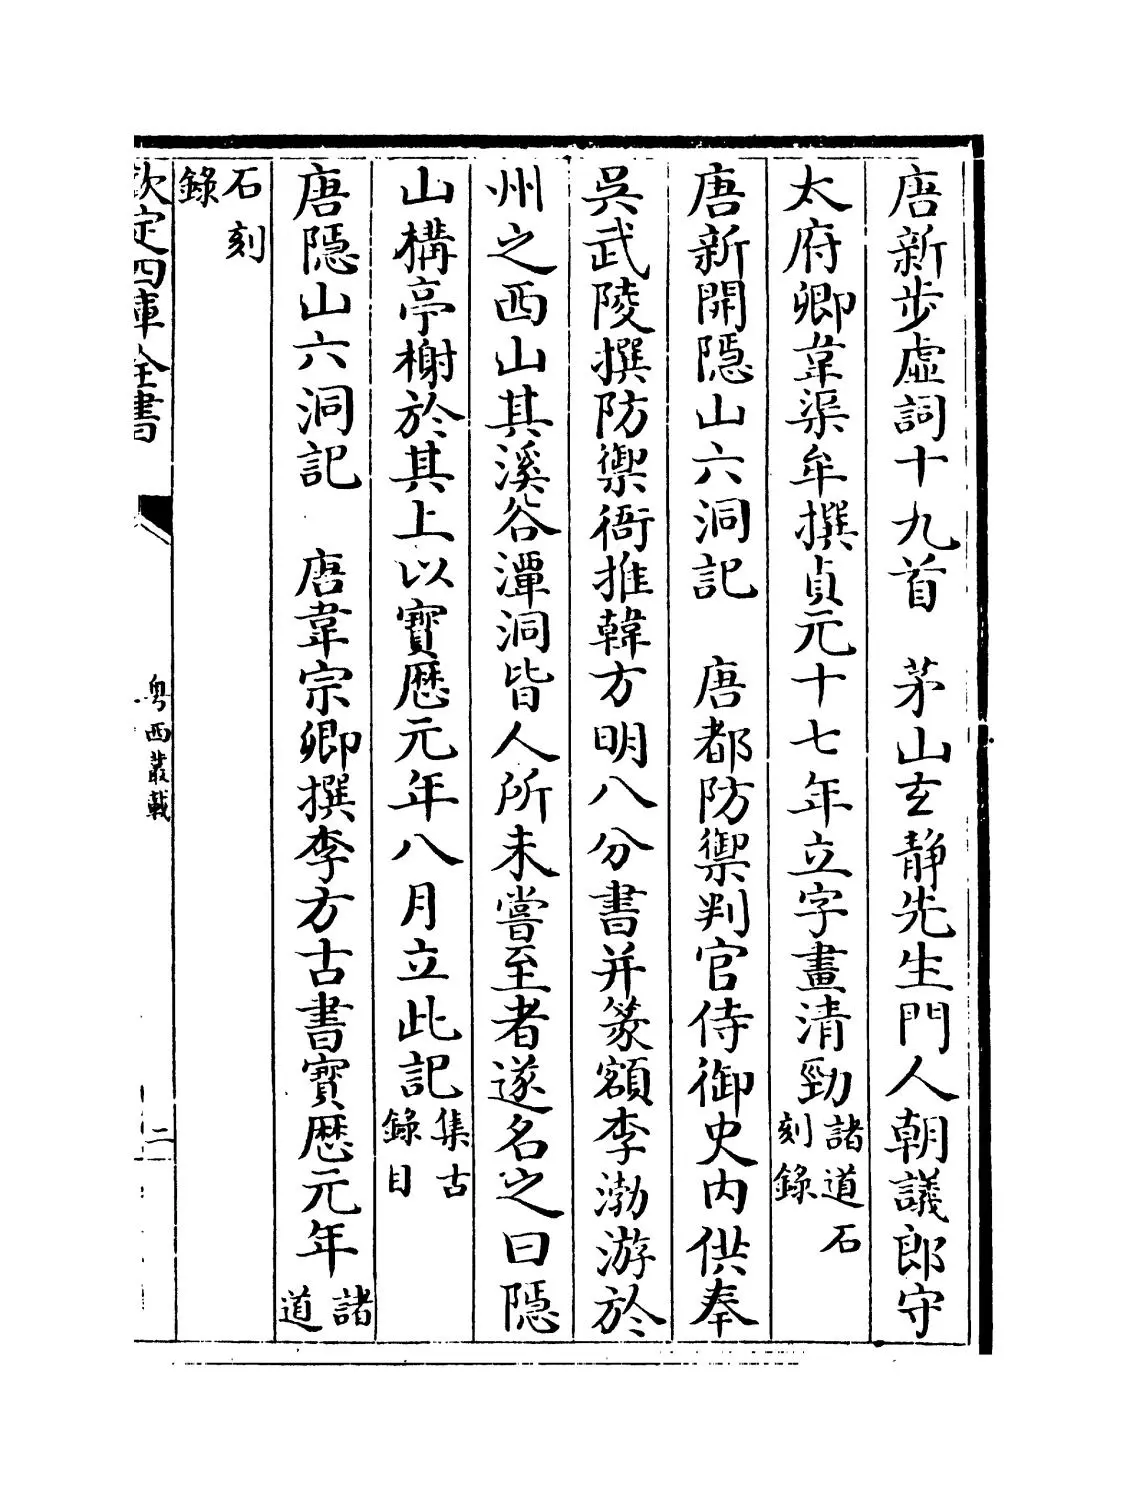 唐新步虛詞十九首　茅山玄靜先生門人朝議郎守
太府卿韋渠牟撰貞元十七年立字畫清勁諸道石刻錄
唐新開隱山六洞記　唐都防禦判官侍御史內供奉
吳武陵撰防禦衙推韓方明八分書并篆額李渤游於
州之西山其溪谷潭洞皆人所未嘗至者遂名之曰隱
山構亭榭於其上以寶歷元年八月立此記集古錄目
唐隱山六洞記　唐韋宗卿撰李方古書寶歷元年諸道
石刻錄
欽定四庫全書
粵西叢載
二